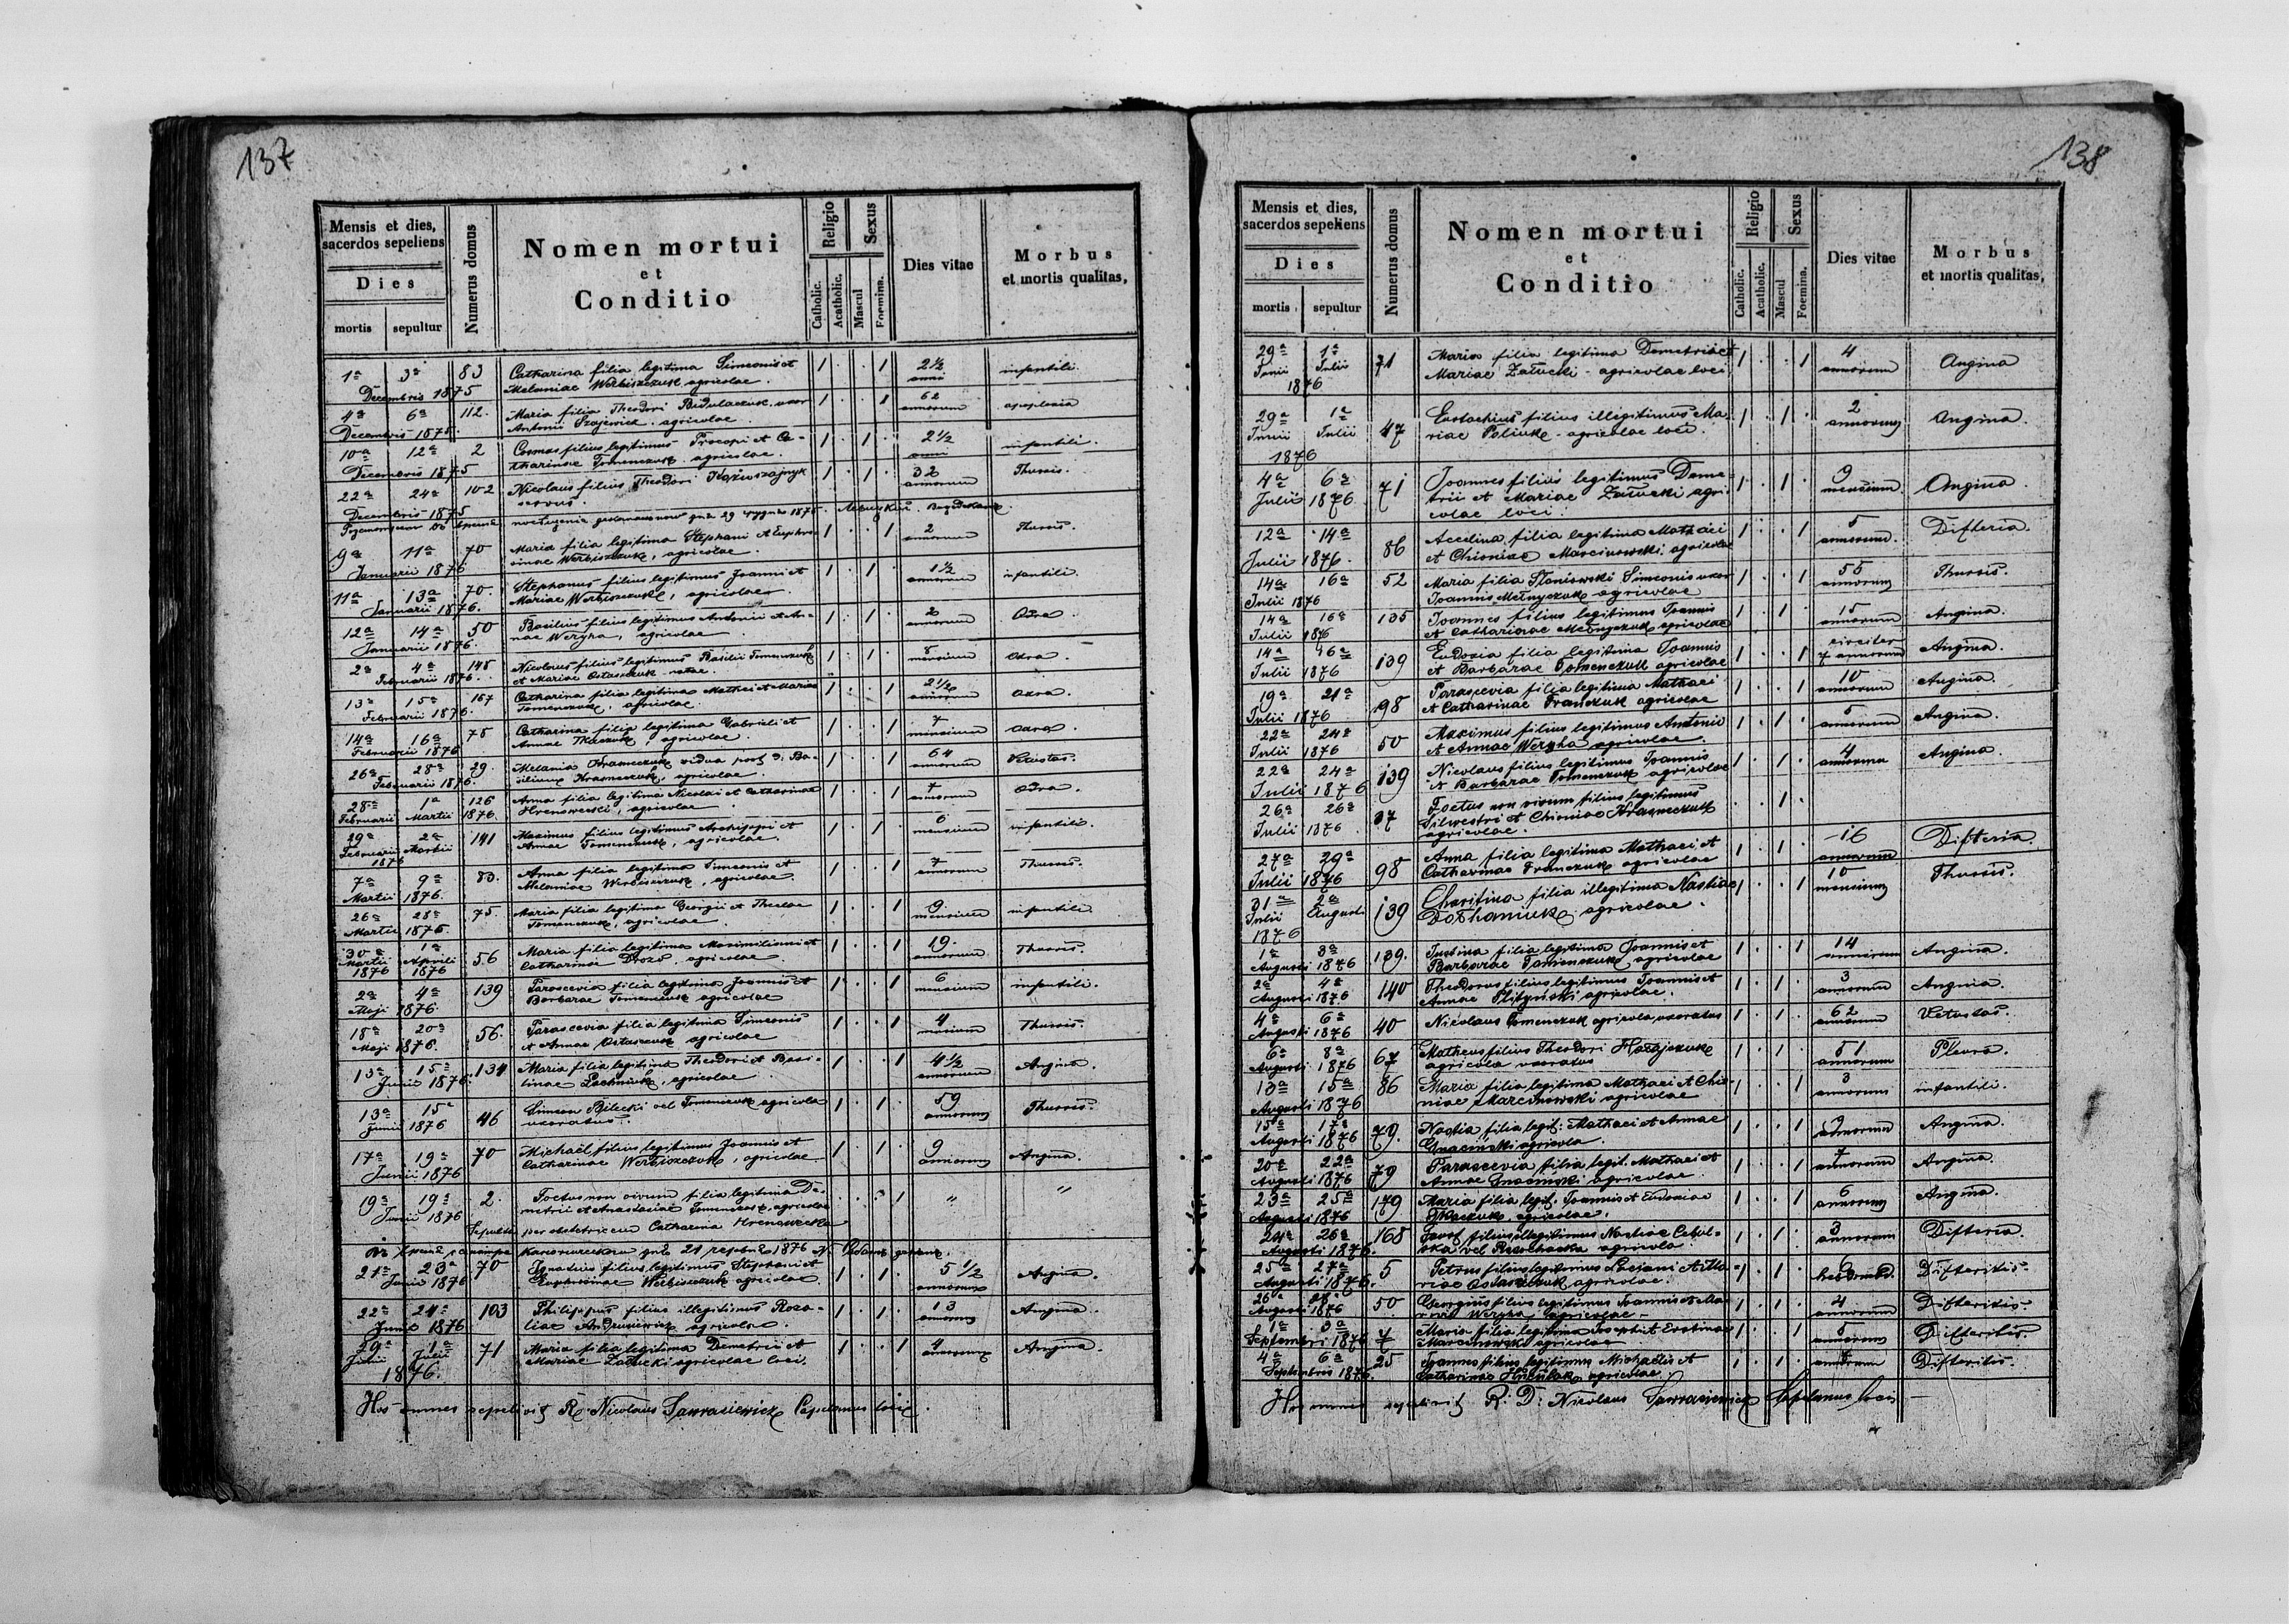 137
Mensis et dies, sacerdos sepeliens
Dies
mortis sepultur
Numerus domus
Nomen mortui
et
Conditio
Religio
Catholic. Acatholic.
Sexus
Mascul Foemina.
Dies vitae
Morbus
et mortis qualitas,
1a 3a 83 Catharina filia legitima Simeonis et 1 . . 1 2½ infantili.
Decembris 1875 Melaniae Werbiszczuk agricolae. anni
4a 6a 112. Maria filia Theodori uxor 1 . . 1 62 apoplexia
Decembris 1875. Antonii Szajewicz. agricolae. annorum
10a 12a 2 Cosmas filius legitimus Procopi et Ca- 1 . 1 . 2½ infantili.
Decembris 1875 tharinae Tomenczuk agricolae. anni
22a 24a 102 Nicolaus filius Theodori 1 . 1 . 32 Thussis.
Decembris 1875 servus. annorum
9a 11a 70 Maria filia legitima Stephani et Euphro- 1 . . 1 2 Thussis.
Januarii 1876 sinae Werbiszczuk, agricolae. annorum
11a 13a 70. Stephanus filius legitimus Joannis et 1 . 1 . 1½ infantili.
Januarii 1876. Mariae Werbiszczuk, agricolae. annorum
12a 14a 50 Basilius filius legitimus Antonii et An- 1 . 1 . 2 Odra.
Januarii 1876. nae Weryha, agricolae. annorum
2a 4a 148 Nicolaus filius legitimus Basilii Tomenczuk 1 . 1 . 8 Odra.
Februarii 1876. et Mariae Ostaszczuk natae. mensium
13a 15a 167 Catharina filia legitima Mathei et Mariae 1 . . 1 2½ Odra.
Februarii 1876. Tomenczuk, agricolae. annorum
14a 16a 78 Catharina filia legitima Gabrieli et 1 . . 1 7 Odra.
Februarii 1876 Annae Tkaczuk, agricolae. mensium
26a 28a 29. Melania Krasneczuk vidua post d. Ba- 1 . . 1 64 Vetustas.
Februarii 1876. silium Krasneczuk, agricolae. annorum
28a 1a 126 Anna filia legitima Nicolai et Catharinae 1 . . 1 7 Odra.
Februarii Martii 1876. Hrenowecki, agricolae. annorum
29a 2a 141 Maximus filius legitimus Archippi et 1 . 1 . 6 infantili.
Februarii Martii Annae Tomenczuk, agricolae. mensium
1876
7a 9a 83. Anna filia legitima Simeonis et 1 . . 1 7 Thussis.
Martii 1876. Melaniae Werbiszczuk, agricolae. annorum
26a 28a 75. Maria filia legitima Georgii et Theclae 1 . . 1 9 infantili.
Martii 1876. Tomenczuk, agricolae. mensium
30a 1a 56 Maria filia legitima Maximiliani et 1 . . 1 19. Thussis.
Martii Aprili Catharinae Drozd, agricolae. annorum
1876 1876
2a 4a 139 Parascevia filia legitima Joannis et 1 . . 1 6 infantili.
Maji 1876. Barbarae Tomenczuk agricolae mensium
18a 20a 56. Parascevia filia legitima Simeonis 1 . . 1 4 Thussis.
Maji 1876. et Annae Ostaszczuk agricolae mensium
13a 15a 134 Maria filia legitima Theodori et Basi- 1 . . 1 4½ Angina.
Junii 1876. linae Lachniuk, agricolae. annorum
13a 15a 46 Simeon Bilecki vel Tomenczuk agricola 1 . 1 . 59 Thussis.
Junii 1876 uxoratus. annorum
17a 19a 70 Michaël filius legitimus Joannis et 1 . 1 . 9 Angina.
Junii 1876 Catharinae Werbiszczuk, agricolae. annorum
19a 19a 2. Foetus non vivum filia legitima De- . . . 1 " "
Junii 1876 metrii et Anastasiae Tomenczuk agricolae
Sepulta per obstetricem Catharina Hrenowecka
21a 23a 70 Ignatius filius legitimus Stephani et 1 . 1 . 5½ Angina.
Junii 1876 Euphrosinae Werbiszczuk agricolae. annorum
22a 24a 103 Philippus filius illegitimus Roza- 1 . 1 . 13 Angina.
Junii 1876 liae Andrusiewicz agricolae. annorum
29a 1a 71 Maria filia legitima Demetrii et 1 . . 1 4 Angina.
Junii Julii Mariae Załucki agricolae loci. annorum
1876.
Hos omnes sepelivit R. Nicolaus Sawrasiewicz Capelanus loci.
138
Mensis et dies, sacerdos sepeliens
Dies
mortis sepultur
Numerus domus
Nomen mortui
et
Conditio
Religio
Catholic. Acatholic.
Sexus
Mascul Foemina.
Dies vitae
Morbus
et mortis qualitas,
29a 1a 71 Maria filia legitima Demetrii et 1 . . 1 4 Angina
Junii Julii Mariae Załucki - agricolae loci annorum
1876
29a 1a 47 Eustachius filius illegitimus Ma- 1 . 1 . 2 Angina.
Junii Julii riae Poliuk - agricolae loci. annorum
1876
4a 6a 71 Joannes filius legitimus Deme- 1 . 1 . 9 Angina.
Julii 1876 trii et Mariae Załucki agri- mensium
colae loci.
12a 14a 86 Accelina filia legitima Mathaei 1 . . 1 5 Difteria.
Julii 1876. et Chioniae Marcinowski agricolae annorum.
14a 16a 52 Maria filia Staniowski Simeonis uxor 1 . . 1 55 Thussis.
Julii 1876 Joannis Melnyczuk agricolae annorum
14a 16a 135 Joannes filius legitimus Joannis 1 . 1 . 15 Angina.
Julii 1876 et Catharinae Melnyczuk agricolae annorum
14a 16a 139 Eudoxia filia legitima Joannis 1 . . 1 circiter Angina.
Julii 1876 et Barbarae Tomenczuk agricolae 7 annorum
19a 21a 98 Parascevia filia legitima Mathaei 1 . . 1 10 Angina.
Julii 1876 et Catharinae Franczuk agricolae annorum
22a 24a 50 Maximus filius legitimus Antonii 1 . 1 . 5 Angina.
Julii 1876 et Annae Weryha agricolae. annorum
22a 24a 139 Nicolaus filius legitimus Joannis 1 . 1 . 4 Angina.
Julii 1876 et Barbarae Tomenczuk agricolae annorum
26a 26a 37 Foetus non vivum filius legitimus . . 1 .
Julii 1876 Silwestri et Chioniae Krasneczuk
agricolae.
27a 29a 98 Anna filia legitima Mathaei et 1 . 1 . 16 Difteria.
Julii 1876 Catharinae Franczuk agricolae annorum
31a 2a 139 Charitina filia illegitima Nastiae 1 . . 1 10 Thussis.
Julii Augusti Dothaniuk agricolae. mensium
1876
1a 3a 139. Justina filia legitima Joannis et 1 . . 1 14 Angina.
Augusti 1876 Barbarae Tomenczuk agricolae annorum
2a 4a 140 Theodorus filius legitimus Joannis et 1 . 1 . 3 Angina.
Augusti 1876 Annae agricolae. annorum
4a 6a 40 Nicolaus Tomenczuk agricola uxoratus 1 . 1 . 62 Vetustas.
Augusti 1876 annorum
6a 8a 67 Matheus filius Theodori 1 . 1 . 51 Pleura.
Augusti 1876 agricola uxoratus annorum
13a 15a 86 Maria filia legitima Mathaei et Chio- 1 . . 1 3 infantili.
Augusti 1876 niae Marcinowski agricolae annorum
15a 17a 79. Nastia filia legit: Mathaei et Annae 1 . . 1 annorum Angina.
Augusti 1876 Gnaciński agricola.
20a 22a 79 Parascevia filia legit. Mathaei et 1 . . 1 7 Angina.
Augusti 1876 Annae Gnaciński agricolae annorum
23a 25a 179 Maria filia legit. Joannis et Eudoxiae 1 . . 1 6 Angina.
Augusti 1876 Tkaczuk, agricolae. annorum
24a 26a 168 filius illegitimus Nastiae 1 . 1 . 3 Difteria.
Augusti 1876. agricola annorum
25a 27a 5 Petrus filius legitimus Luciani et Ma- 1 . 1 . hebdomad. Difteritis.
Augusti 1876. riae Ostaszczuk agricolae.
26a 28a 50 Georgius filius legitimus Joannis et Ma- 1 . 1 . 4 Difteritis.
Augusti 1876 riae Weryha agricolae annorum
1a 3a 7 Maria filia legitima 1 . . 1 5 Difteritis.
Septembri 1876 Marcinowski agricolae annorum
4a 6a 25 Joannes filius legitimus Michaelis et 1 . 1 . annorum Difteritis.
Septembris 1876. Catharinae agricolae.
Hos omnes sepelivit R. D. Nicolaus Sawrasiewicz Capelanus loci